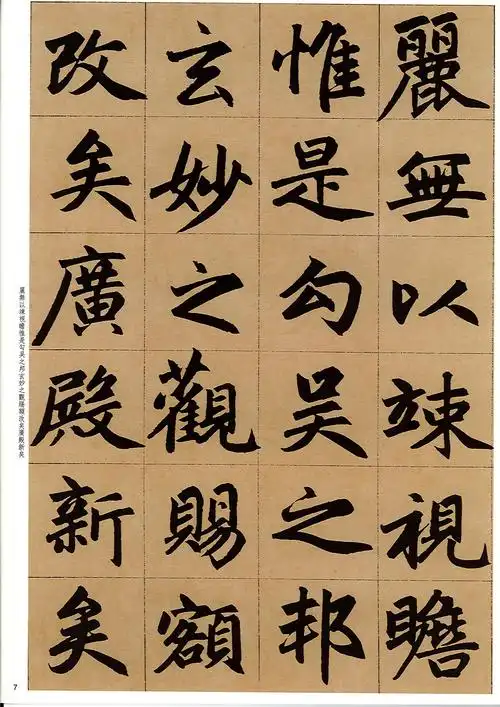 麗無以竦視瞻
惟是勾吴之邦
玄妙之觀賜額
改矣廣殿新矣
麗無以竦視瞻惟是勾吴之邦玄妙之觀賜額改矣廣殿新矣
7